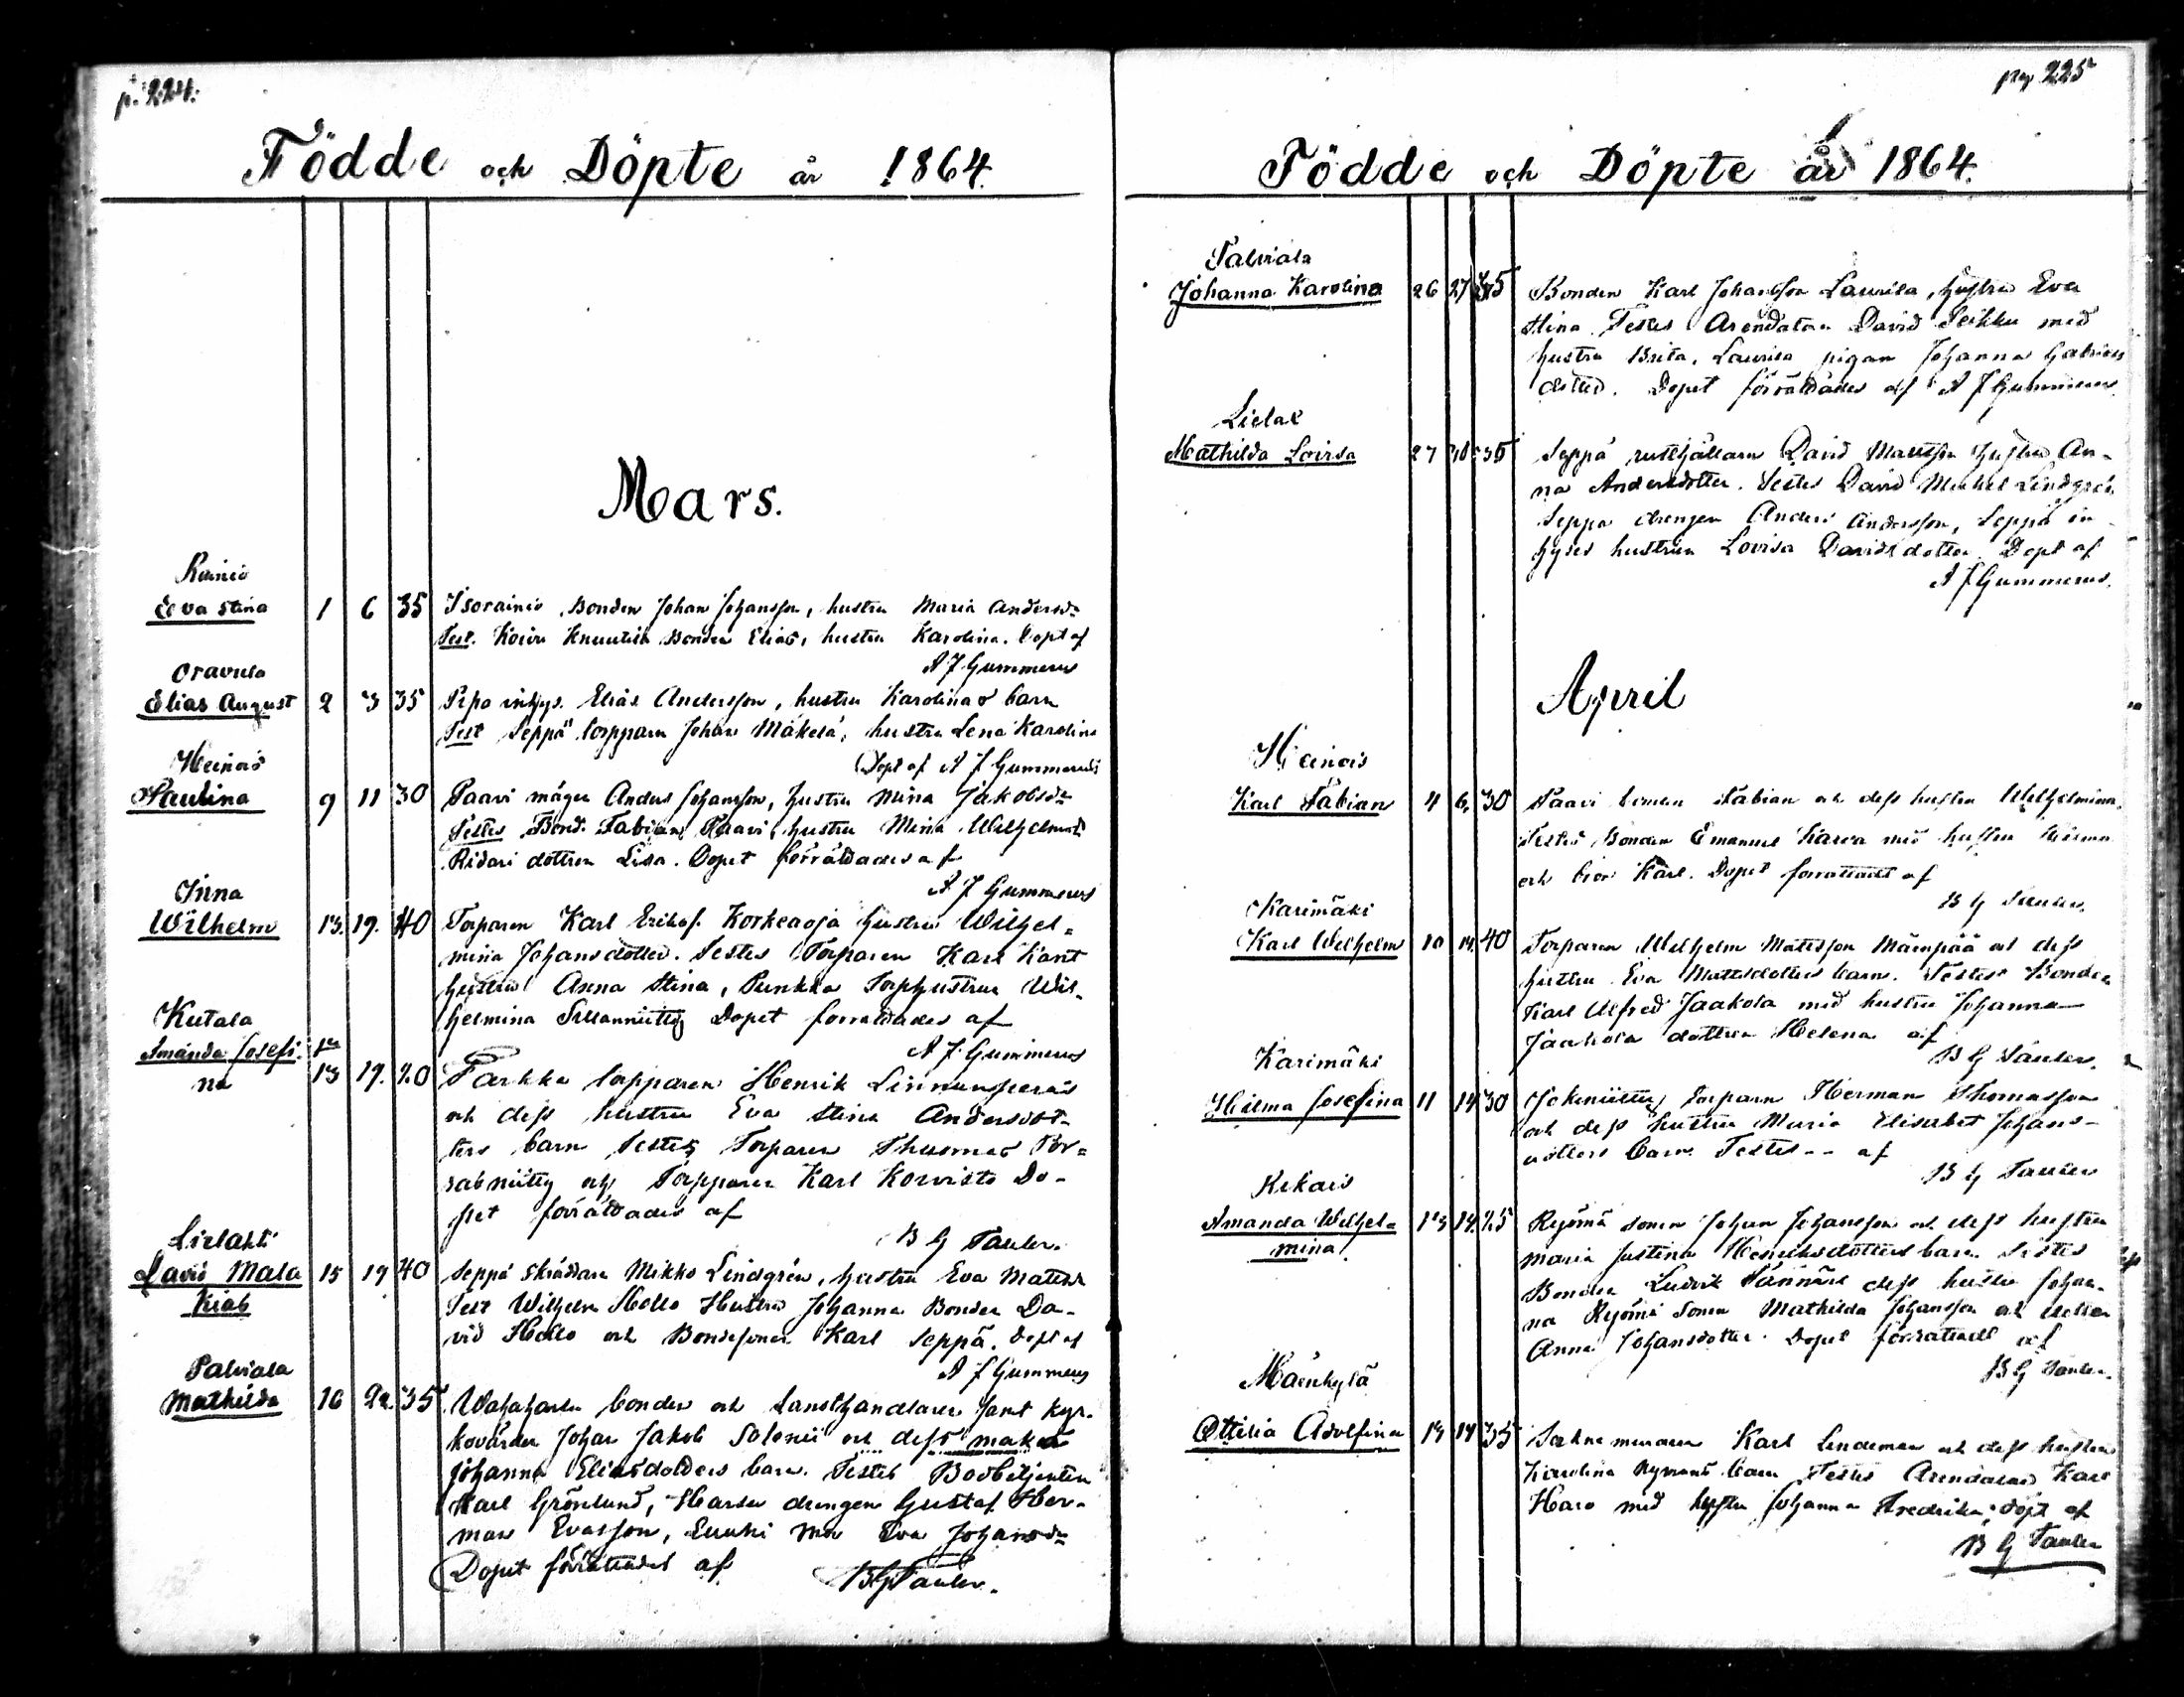 p. 224.
Födde och Döpte år 1864.
Mars.
Rainio
Eva Stina 1 6 35 Isorainio Bonden Johan Johansson, hustru Maria Andersdr
Test. Koivu Knuutila Bonden Elias, hustru Karolina. Döpt af
A J Gummerus
Oravula
Elias August 2 3 35 Pipo inhys. Elias Andersson, hustru Karolinas barn
Test Seppä torpparn Johan Mäkelä, hustru Lena Karolina
Döpt af A J Gummerus
Heinois
Paulina 9 11 30 Paavi mågen Anders Johansson, hustru Mina Jakobsdr
Testes Bond. Fabian Paavi, hustru Mina Wilhelmsd.
Ridari dottren Lisa. Dopet förrättades af
A J Gummerus
Inna
Wilhelm 13. 19. 40 Torparen Karl Eriksf. Korkeaoja hustru Wilhel-
mina Johansdotter. Testes Torparen Karl Kant
hustru Anna Stina, Punkka Torphustrun Wil-
helmina Dopet förrättades af
A J Gummerus
Kutala
Amanda Josefi-
na 13 19. 20 Parkka torpparen Henrik Linnunperäs
och dess hustru Eva Stina Andersdot-
ters barn Testes Torparen Thuomas
och Torpparen Karl Koivisto Do-
pet förrättades af
B G Tauler.
Lielaks
David Mala
kias 15 19 40 Seppä skräddare Mikko Lindgrén, hustru Eva Mattsdr
Test Wilhelm Hollo Hustru Johanna Bonden Da-
vid Hollo och Bondesonen Karl Seppä. Döpt af
A J Gummerus
Palviala
Mathilda 16 22. 35 bonden och Lanthandlaren samt kyr-
kovärden Johan Jakob Salonii och dess maka
Johanna Eliasdotters barn. Testes Bodbetjenten
Karl Grönlund, Harsu drengen Gustaf Her-
man Evasson, Mor Eva Johansdr
Dopet förrättades af B G Tauler.
pag 225
Födde och Döpte år 1864.
Palviala
Johanna Karolina 26 27 35 Bonden Karl Johansson Laurila, hustru Eva
Stina. Testes Arendatorn David Peikku med
hustru Brita, Laurila pigan Johanna Gabriels
dotter. Dopet förrättades af A J Gummerus
Lielax
Mathilda Lovisa 27 30 35 Seppä rusthållaren David Mattsson hustru An-
na Andersdotter. Testes David Mickel Lindgrén
Seppä drengen Anders Andersson, Seppä in-
hyses hustrun Lovisa Davidsdotter. Döpt af
A J Gummerus.
April
Heinois
Karl Fabian 4 6. 30 Paavi bonden Fabian och dess hustru Wilhelmina.
Testes Bonden Emanuel Karva med hustru
och bror Karl. Dopet förrättadt af
B G Tauler.
Karimäki
Karl Wilhelm 10 14. 40 Torparen Wilhelm Mattsson Mäenpää och dess
hustru Eva Mattsdotters barn. Testes Bonden
Karl Alfred Jaakola med hustru Johanna
Jaakola dottren Helena af
B G Tauler.
Karimäki
Hilma Josefina 11 14 30 Jokiniitty torparn Herman Thomasson
och dess hustru Maria Elisabet Johans-
dotters barn. Testes -- af
B G Tauler
Kekois
Amanda Wilhel-
mina 13 14. 25 Ryömä sonen Johan Johansson och dess hustru
Maria Justina Henriksdotters barn. Testes
Bonden Ludvik Pännäri dess hustru Johan-
na Ryömä sonen Mathilda Johansson och
Anna Johansdotter. Dopet förrättadt af
B G Tauler.
Mäenkylä
Ottilia Adolfina 13 14 35 Karl Lindeman och dess hustru
Karolina Nymans barn Testes Arendatorn Karl
Haro med hustru Johanna Fredrika; döpt af
B G Tauler